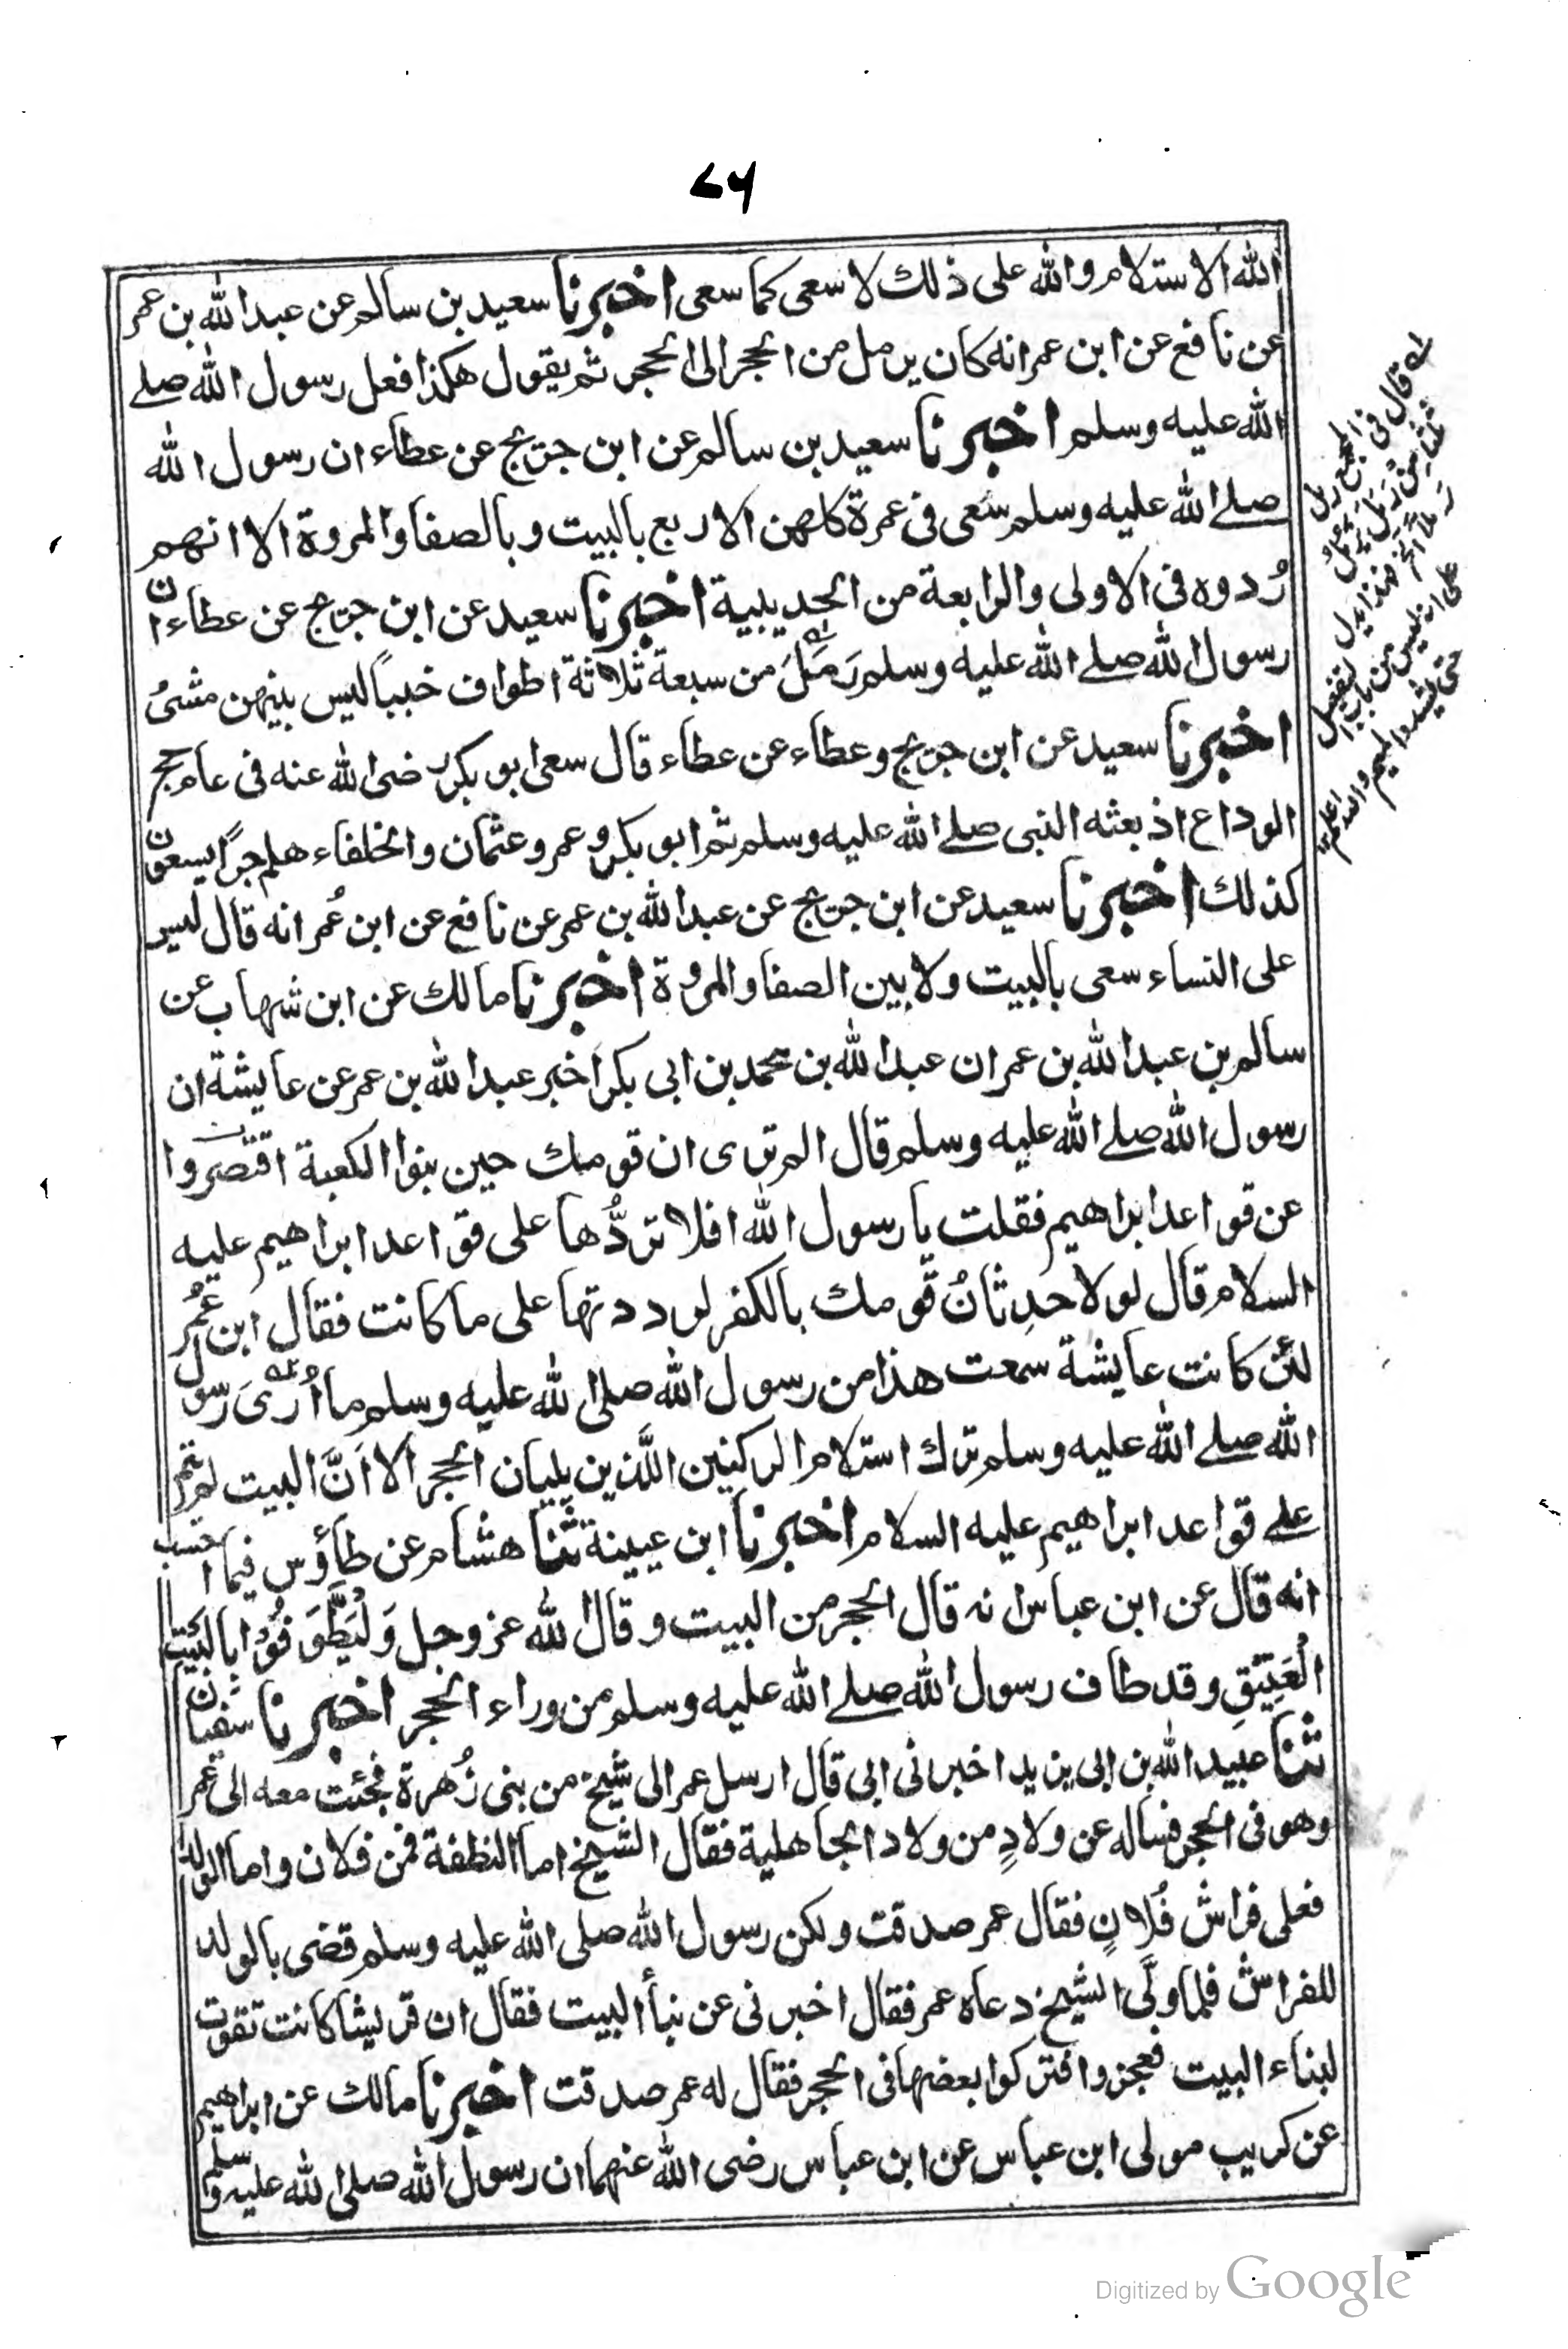 ٧٦
الله الاستلام والله على ذلك لاسعى كما سعى اخبرنا سعيد بن سالم عن عبد الله بن عمر
عن نافع عن ابن عمر انه كان يرمل من الحجر الى الحجر ثم يقول هكذا فعل رسول الله صلے
الله عليه وسلم اخبرنا سعيد بن سالم عن ابن جريج عن عطاء ان رسول الله
صلے الله عليه وسلم سَعى فى عمرة كلهن الاربع بالبيت وبالصفا والمروة الا انهم
رُدوه فى الاولى والرابعة من الحديبية اخبرنا سعيد عن ابن جريج عن عطاء ان
رسول الله صلے الله عليه وسلم رَمَلَ من سبعة ثلاثة اطواف خبباً ليس بينهن مشىُ
اخبرنا سعيد عن ابن جريج وعطاء عن عطاء قال سعى ابو بكر رضى الله عنه فى عام حج
الوداع اذ بعثه النبى صلے الله عليه وسلم ثم ابو بكر وعمر وعثمان والخلفاء هلم جرًا يسعون
كذلك اخبرنا سعيد عن ابن جريج عن عبد الله بن عمر عن نافع عن ابن عُمر انه قال ليس
على النساء سعى بالبيت ولا بين الصفا والمروة اخبرنا مالك عن ابن شهاب عن
سالم بن عبد الله بن عمر ان عبد الله بن محمد بن ابى بكر اخبر عبد الله بن عمر عن عايشة ان
رسول الله صلے الله عليه وسلم قال الم ترى ان قومك حين بنوا الكعبة اقتصروا
عن قواعد ابراهيم فقلت يا رسول الله افلا تردُّها على قواعد ابراهيم عليه
السلام قال لولا حدِثانُ قومك بالكفر لرددتها على ما كانت فقال ابن عُمر
لئن كانت عايشة سمعت هذا من رسول الله صلى الله عليه وسلم ما اُرٰى رسول
الله صلے الله عليه وسلم ترك استلام الركنين اللَّذين يليان الحجر الا اَنَّ البيت لم يتم
علے قواعد ابراهيم عليه السلام اخبرنا ابن عيينة ثنا هشام عن طاؤس فيما احسب
انه قال عن ابن عباس انه قال الحجر من البيت وقال الله عز وجل وَلْيَطَّوَّفُوْا بِالْبَيْتِ
الْعَتِيْقِ وقد طاف رسول الله صلے الله عليه وسلم من وراء الحجر اخبرنا سفيان
ثنا عبيد الله بن ابى يزيد اخبرنى ابى قال ارسل عمر الى شيخ من بنى زُهرة فجئت معه الى عمر
وهو فى الحجر فساله عن ولادٍ من ولاد الجاهلية فقال الشيخ اما النطفة فمن فلان واما الولد
فعلى فراش فُلانٍ فقال عمر صدقت ولكن رسول الله صلى الله عليه وسلم قضى بالولد
للفراش فلما ولَّى الشيخ دعاه عمر فقال اخبرنى عن نبأ البيت فقال ان قريشا كانت تقوت
لبناء البيت فعجزوا فتركوا بعضها فى الحجر فقال له عمر صدقت اخبرنا مالك عن ابراهيم
عن كريب مولى ابن عباس عن ابن عباس رضى الله عنهما ان رسول الله صلى الله عليه وسلم
قال فى المجمع رمل
من رمل يرمل
رملا
فهذا يدل
على انه ليس من باب
تفعيل
حتى يشدد الميم والله
اعلم
Digitized by Google